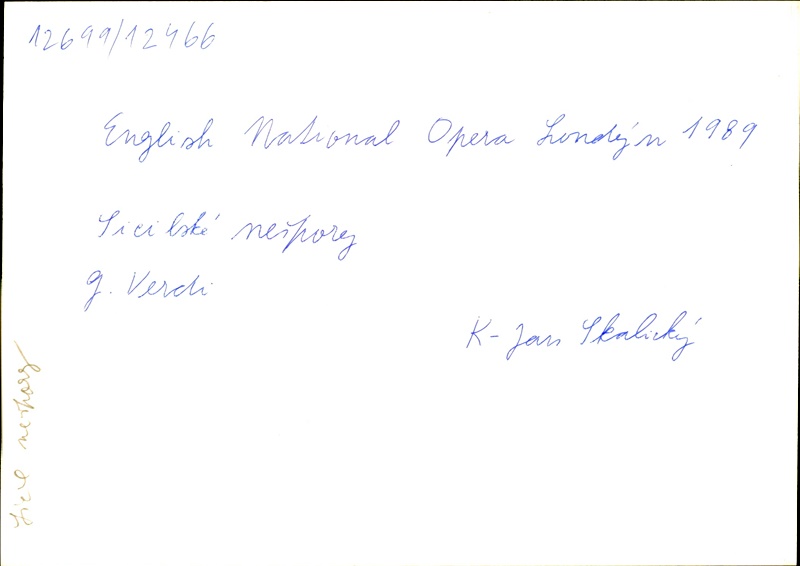 12699/12466
English National Opera Londýn 1989
Sicilské nešpory
G. Verdi
K- Jan Skalický
Sicil nešpory